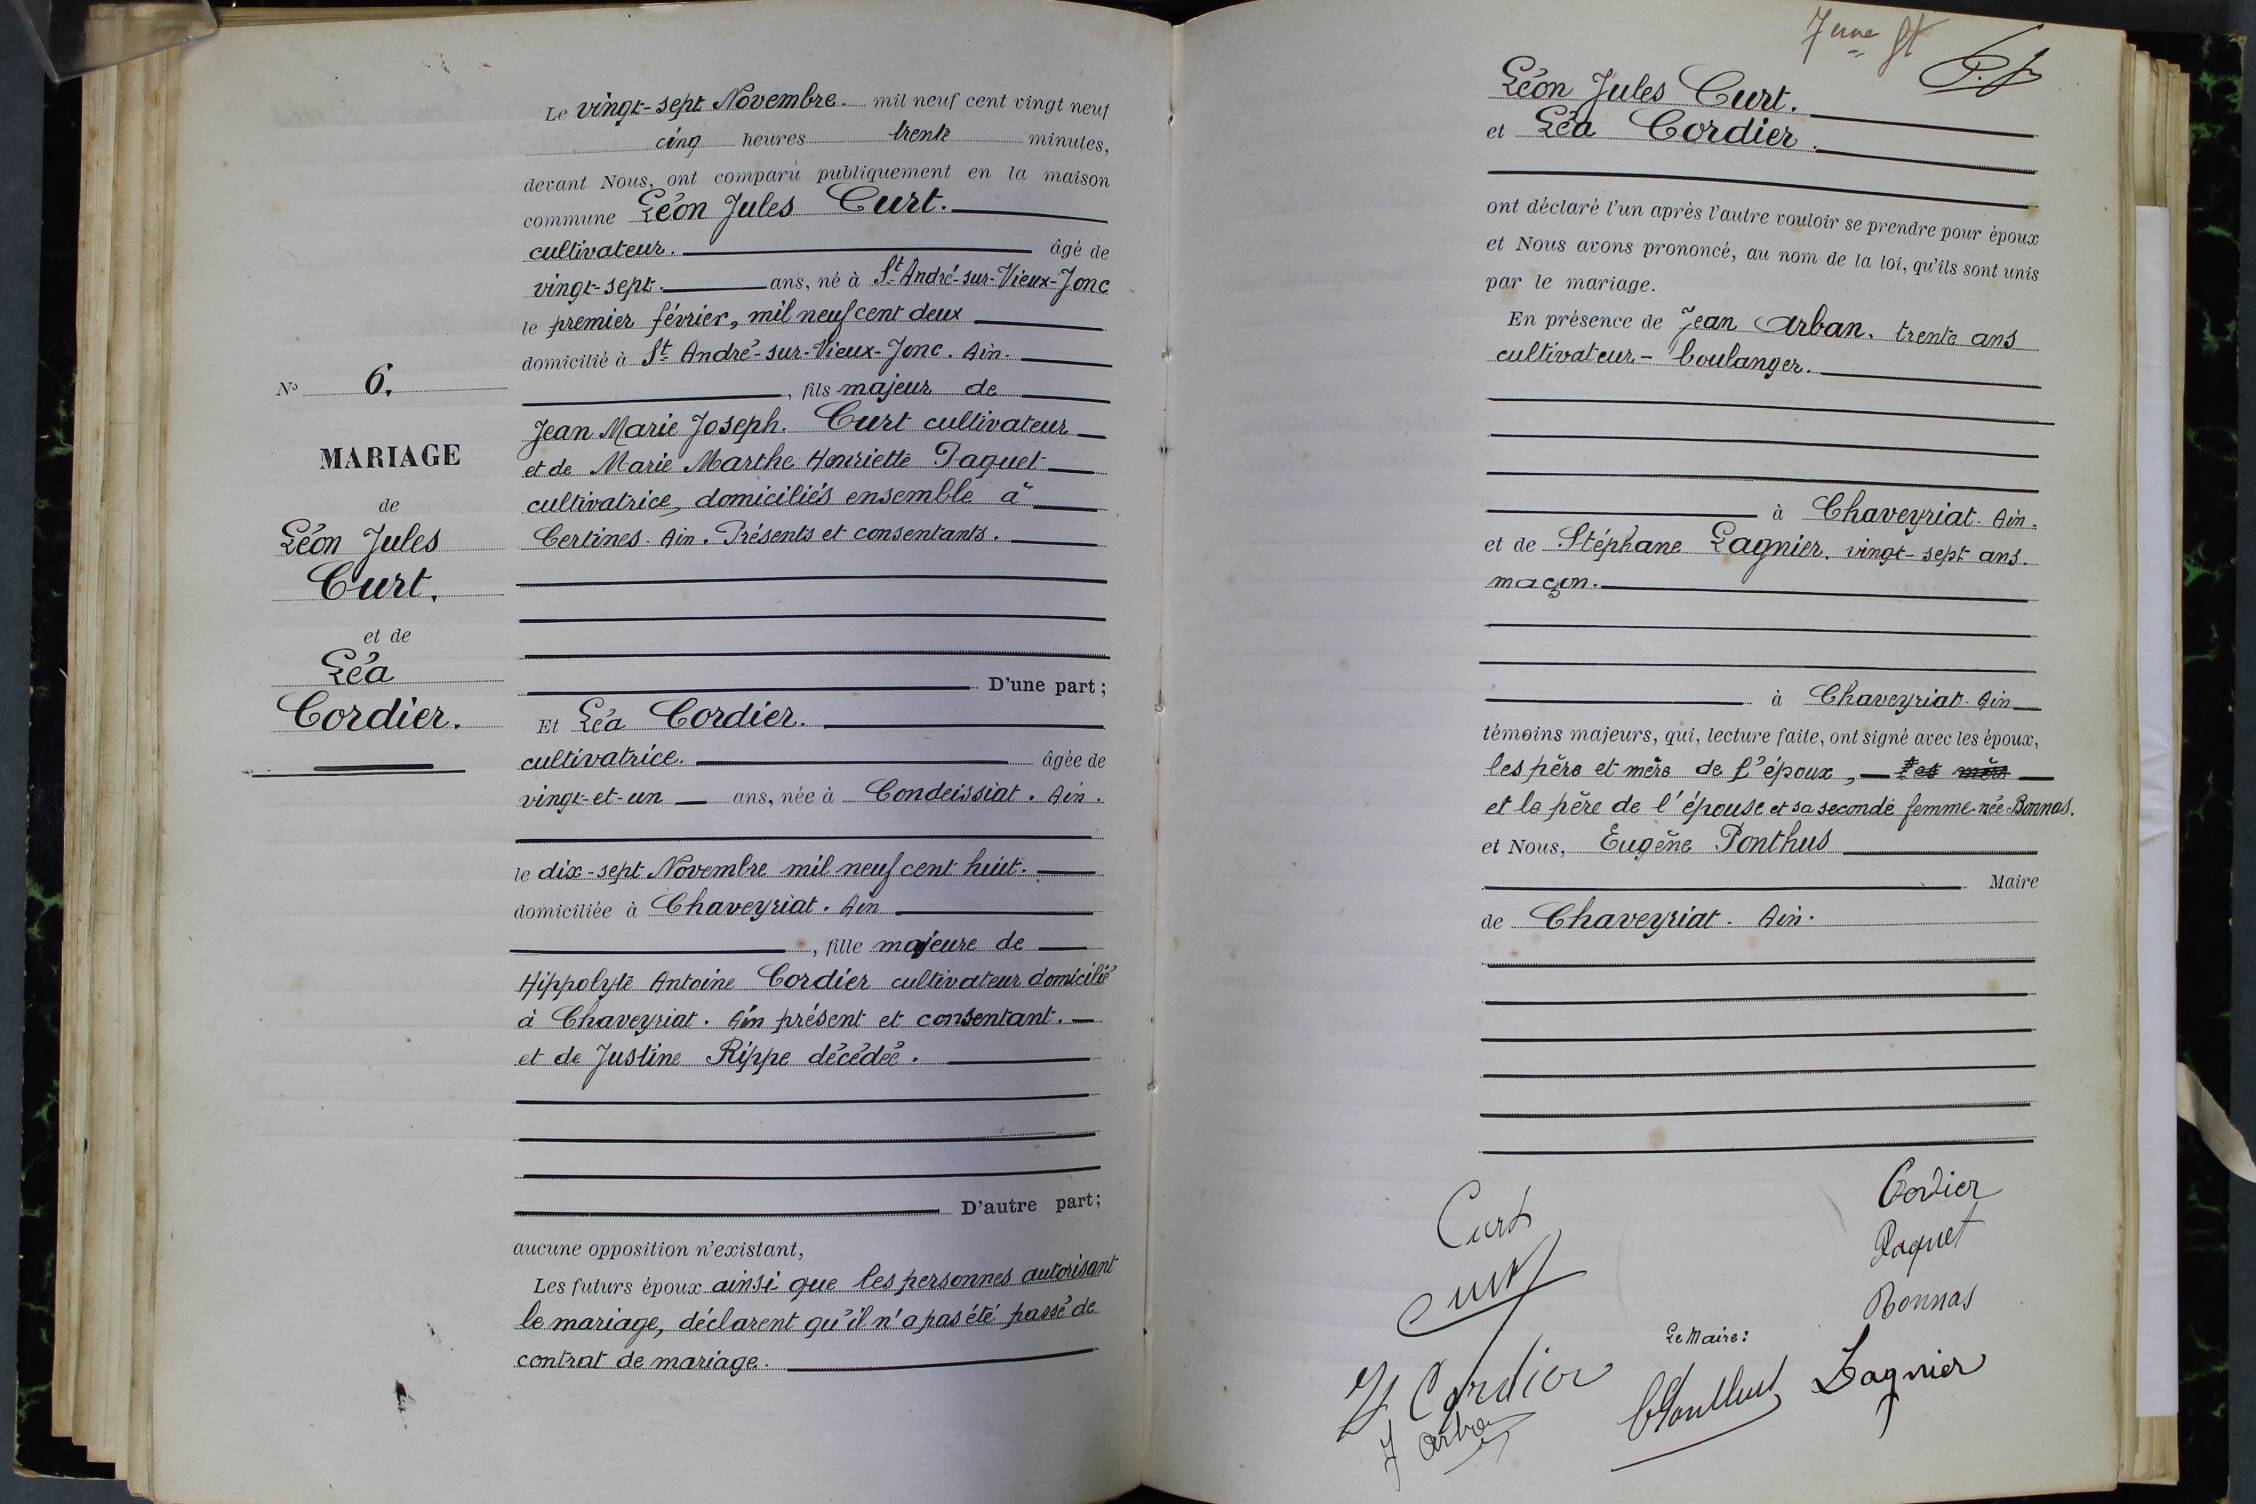 N° 6.
MARIAGE
de
Léon Jules
Curt.
et de
Léa
Cordier.
Le vingt-sept Novembre. mil neuf cent vingt neuf
cinq heures trente minutes,
devant Nous, ont comparu publiquement en la maison
commune Léon Jules Curt.
cultivateur. âgé de
vingt-sept. ans, né à St André-sur-Vieux-Jonc
le premier février, mil neuf cent deux
domicilié à St André-sur-Vieux-Jonc. Ain.
, fils majeur de
Jean Marie Joseph. Curt cultivateur
et de Marie Marthe Henriette Paquet
cultivatrice, domiciliés ensemble à
Certines. Ain. Présents et consentants.
D'une part;
Et Léa Cordier.
cultivatrice. âgée de
vingt-et-un ans, née à Condeissiat. Ain.
le dix-sept Novembre mil neuf cent huit.
domiciliée à Chaveyriat. Ain
, fille majeure de
Hippolyte Antoine Cordier cultivateur domicilié
à Chaveyriat. Ain présent et consentant.
et de Justine Rippe décédée.
D'autre part;
aucune opposition n'existant,
Les futurs époux ainsi que les personnes autorisant
le mariage, déclarent qu'il n'a pas été passé de
contrat de mariage.
Léon Jules Curt.
et Léa Cordier.
ont déclaré l'un après l'autre vouloir se prendre pour époux
et Nous avons prononcé, au nom de la loi, qu'ils sont unis
par le mariage.
En présence de Jean Arban. trente ans
cultivateur - boulanger.
à Chaveyriat. Ain.
et de Stéphane Lagnier. vingt-sept ans.
maçon.
à Chaveyriat. Ain
témoins majeurs, qui, lecture faite, ont signé avec les époux,
les père et mère de l'époux, les mère
et le père de l'épouse et sa seconde femme née Bonnas.
et Nous, Eugène Ponthus
Maire
de Chaveyriat. Ain.
Curt
Curt
Cordier
Paquet
Bonnas
Le Maire:
H Cordier
J Arban
EPonthus
Lagnier